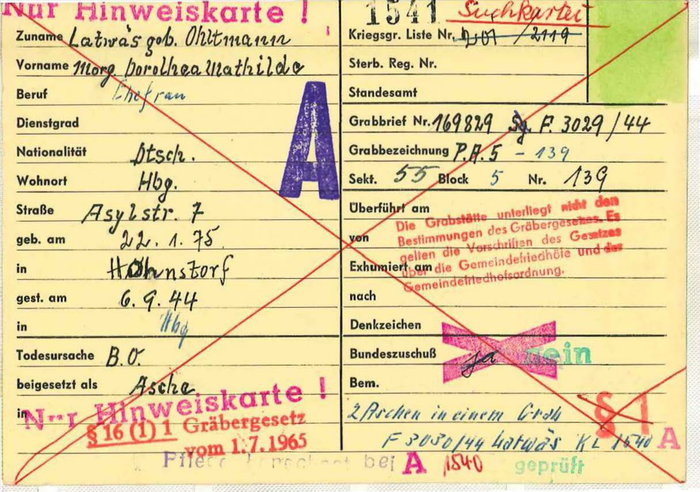 Nur Hinweiskarte !
1541 Suchkartei
Zuname Latwäs geb. Ohltmann
Kriegsgr. Liste Nr. 201 / 2119
Vorname Marg. Dorothea Mathilde
Sterb. Reg. Nr.
Beruf Ehefrau
Standesamt
Dienstgrad
Grabbrief Nr. 169829 Sg. F. 3029/44
A
Nationalität Dtsch.
Grabbezeichnung P.A.5 - 139
Wohnort Hbg.
Sekt. 55 Block 5 Nr. 139
Straße Asylstr. 7
Überführt am
geb. am 22. 1. 75.
von
in Hohnstorf
Exhumiert am
Die Grabstätte unterliegt nicht den
Bestimmungen des Gräbergesetzes. Es
gelten die Vorschriften des Gesetzes
über die Gemeindefriedhöfe und der
Gemeindefriedhofsordnung.
gest. am 6. 9. 44
nach
in Hbg
Denkzeichen
Todesursache B.O.
Bundeszuschuß ja nein
beigesetzt als Asche
Bem.
in
Nur Hinweiskarte !
2 Aschen in einem Grab
§ 1
§ 16 (1) 1 Gräbergesetz
vom 1.7.1965
F 3030/44 Latwäs KL 1540 A
bei A 1540 geprüft